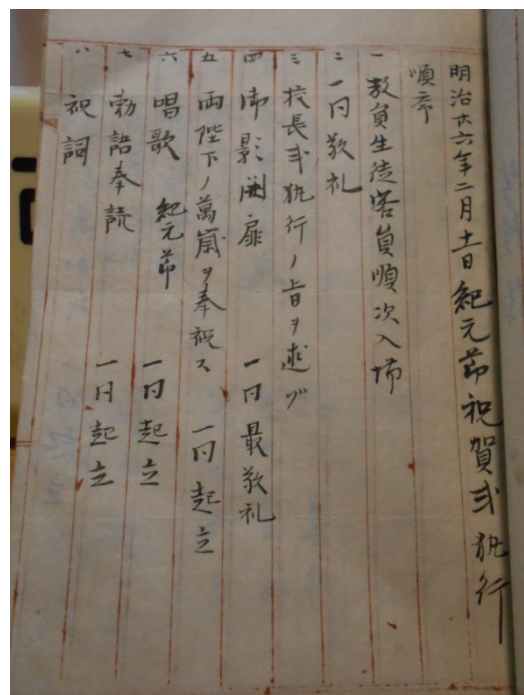 明治廿六年二月十一日紀元節祝賀式執行
順序
一 教員生徒客員順次入場
二 一同敬礼
三 校長式執行ノ旨ヲ述ブ
四 御影開扉 一同最敬礼
五 両陛下ノ萬歳ヲ奉祝ス 一同起立
六 唱歌 紀元節 一同起立
七 勅語奉読 一同起立
八 祝詞